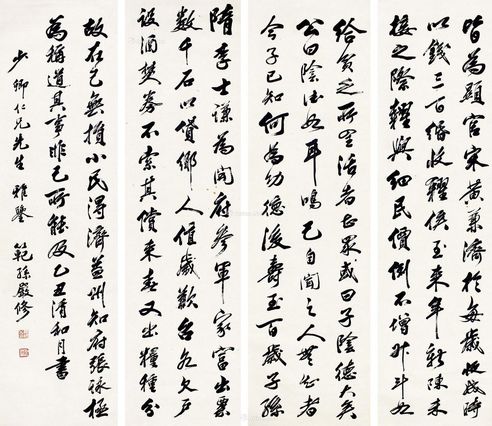 皆為顯官宋黃兼濟於每歲收成時
以錢三百緡收糴候至來年新陳未
接之際糶與細民價例不增升斗如
給貧乏所全活者甚眾或曰子陰德大矣
公曰陰德如耳鳴己自聞之人無知者
今子已知何為德後壽至百歲子孫
隋李士謙為開府參軍家富出粟
數千石以貸鄉人值歲歉召各欠戶
設酒焚券不索其償來春又出糧種分
故在己無損小民得濟益州知府張詠極
為稱道其事非己所能及乙丑清和月書
少卿仁兄先生雅鑒 範孫嚴修